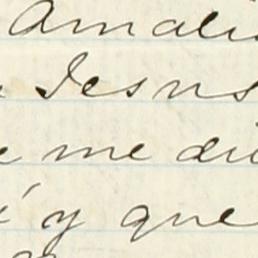 Amali
Jesus
e me di
y que